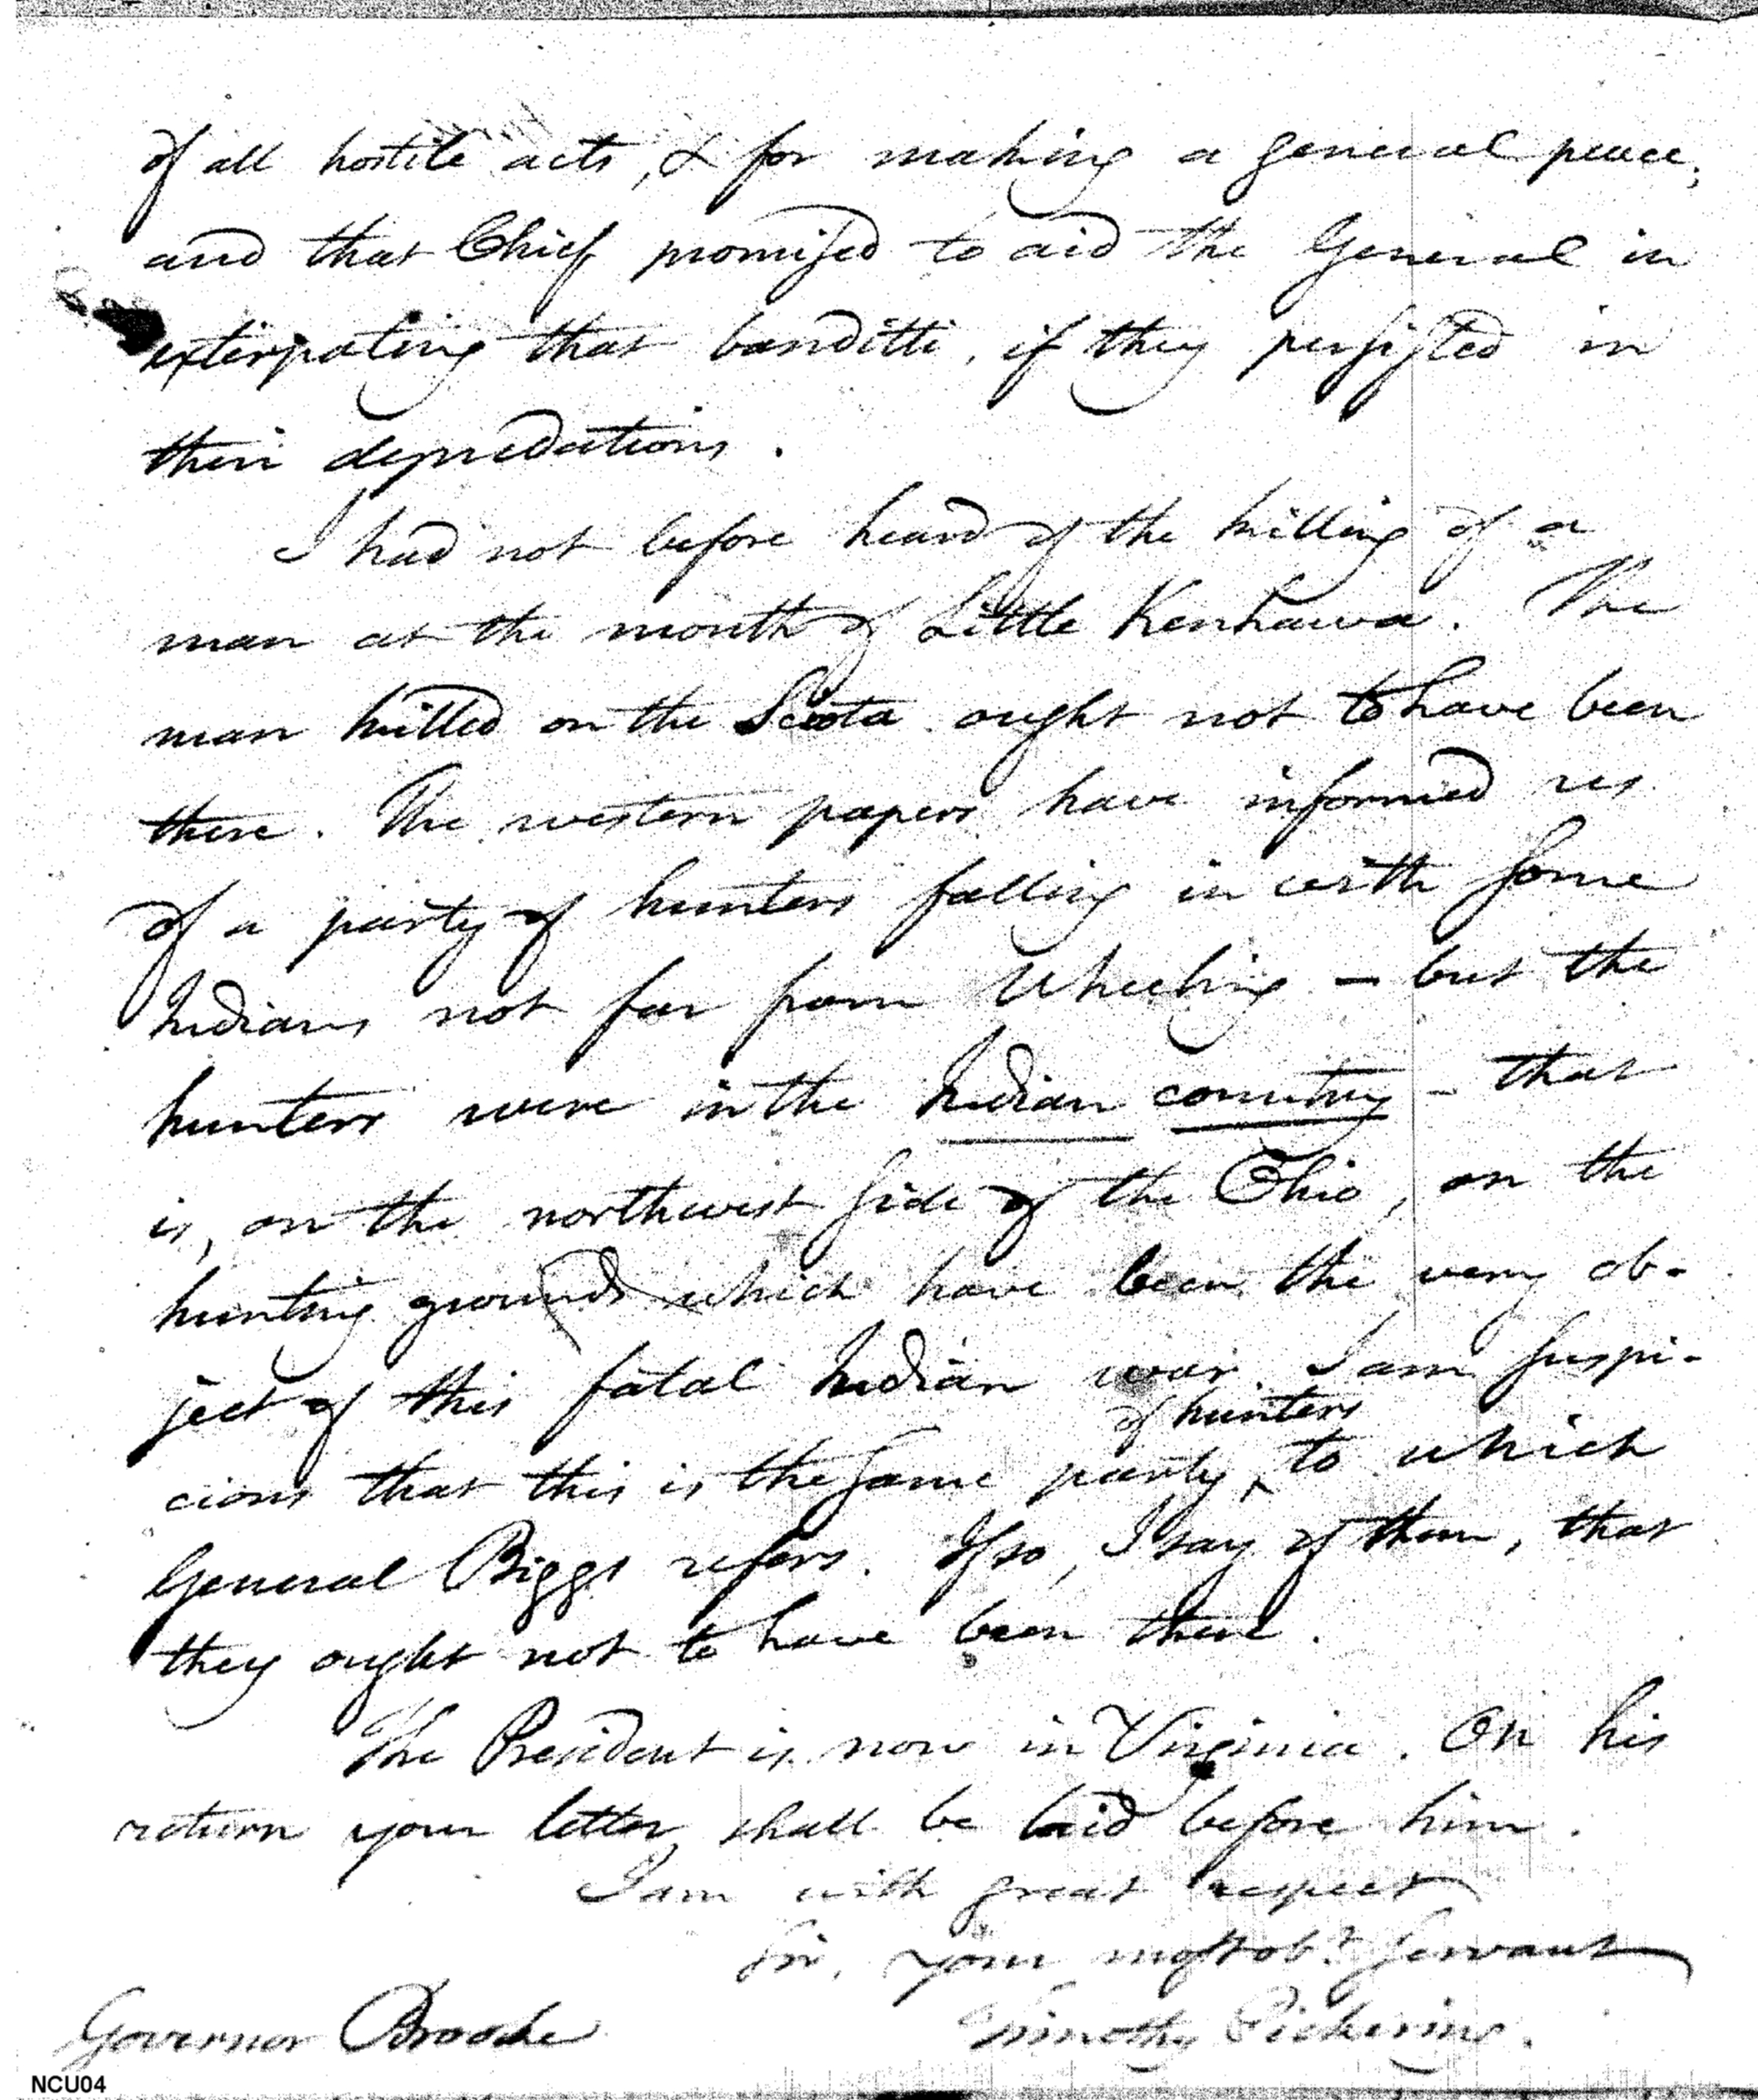 of all hostile acts, & for making a general peace;
and that Chief promised to aid the General in
exterpating that banditti, if they persisted in
their depredations.
I had not before heard of the killing of a
man at the mouth of Little Kenhawa. The
man killed on the Sciota ought not to have been
there. The western papers have informed us
of a party of hunters falling in with some
Indians not far from Wheeling – but the
hunters were in the Indian country – that
is, on the northwest side of the Ohio, on the
hunting grounds which have been the very ob-
ject of this fatal Indian war. I am suspi-
of hunters
cious that this is the same party ‸ to which
General Biggs refers. If so, I say of them, that
they ought not to have been there.
The President is now in Virginia. On his
return your letter shall be laid before him.
I am with great respect
Sir, your most obt. servant
Governor Brooke Timothy Pickering.
NCU04